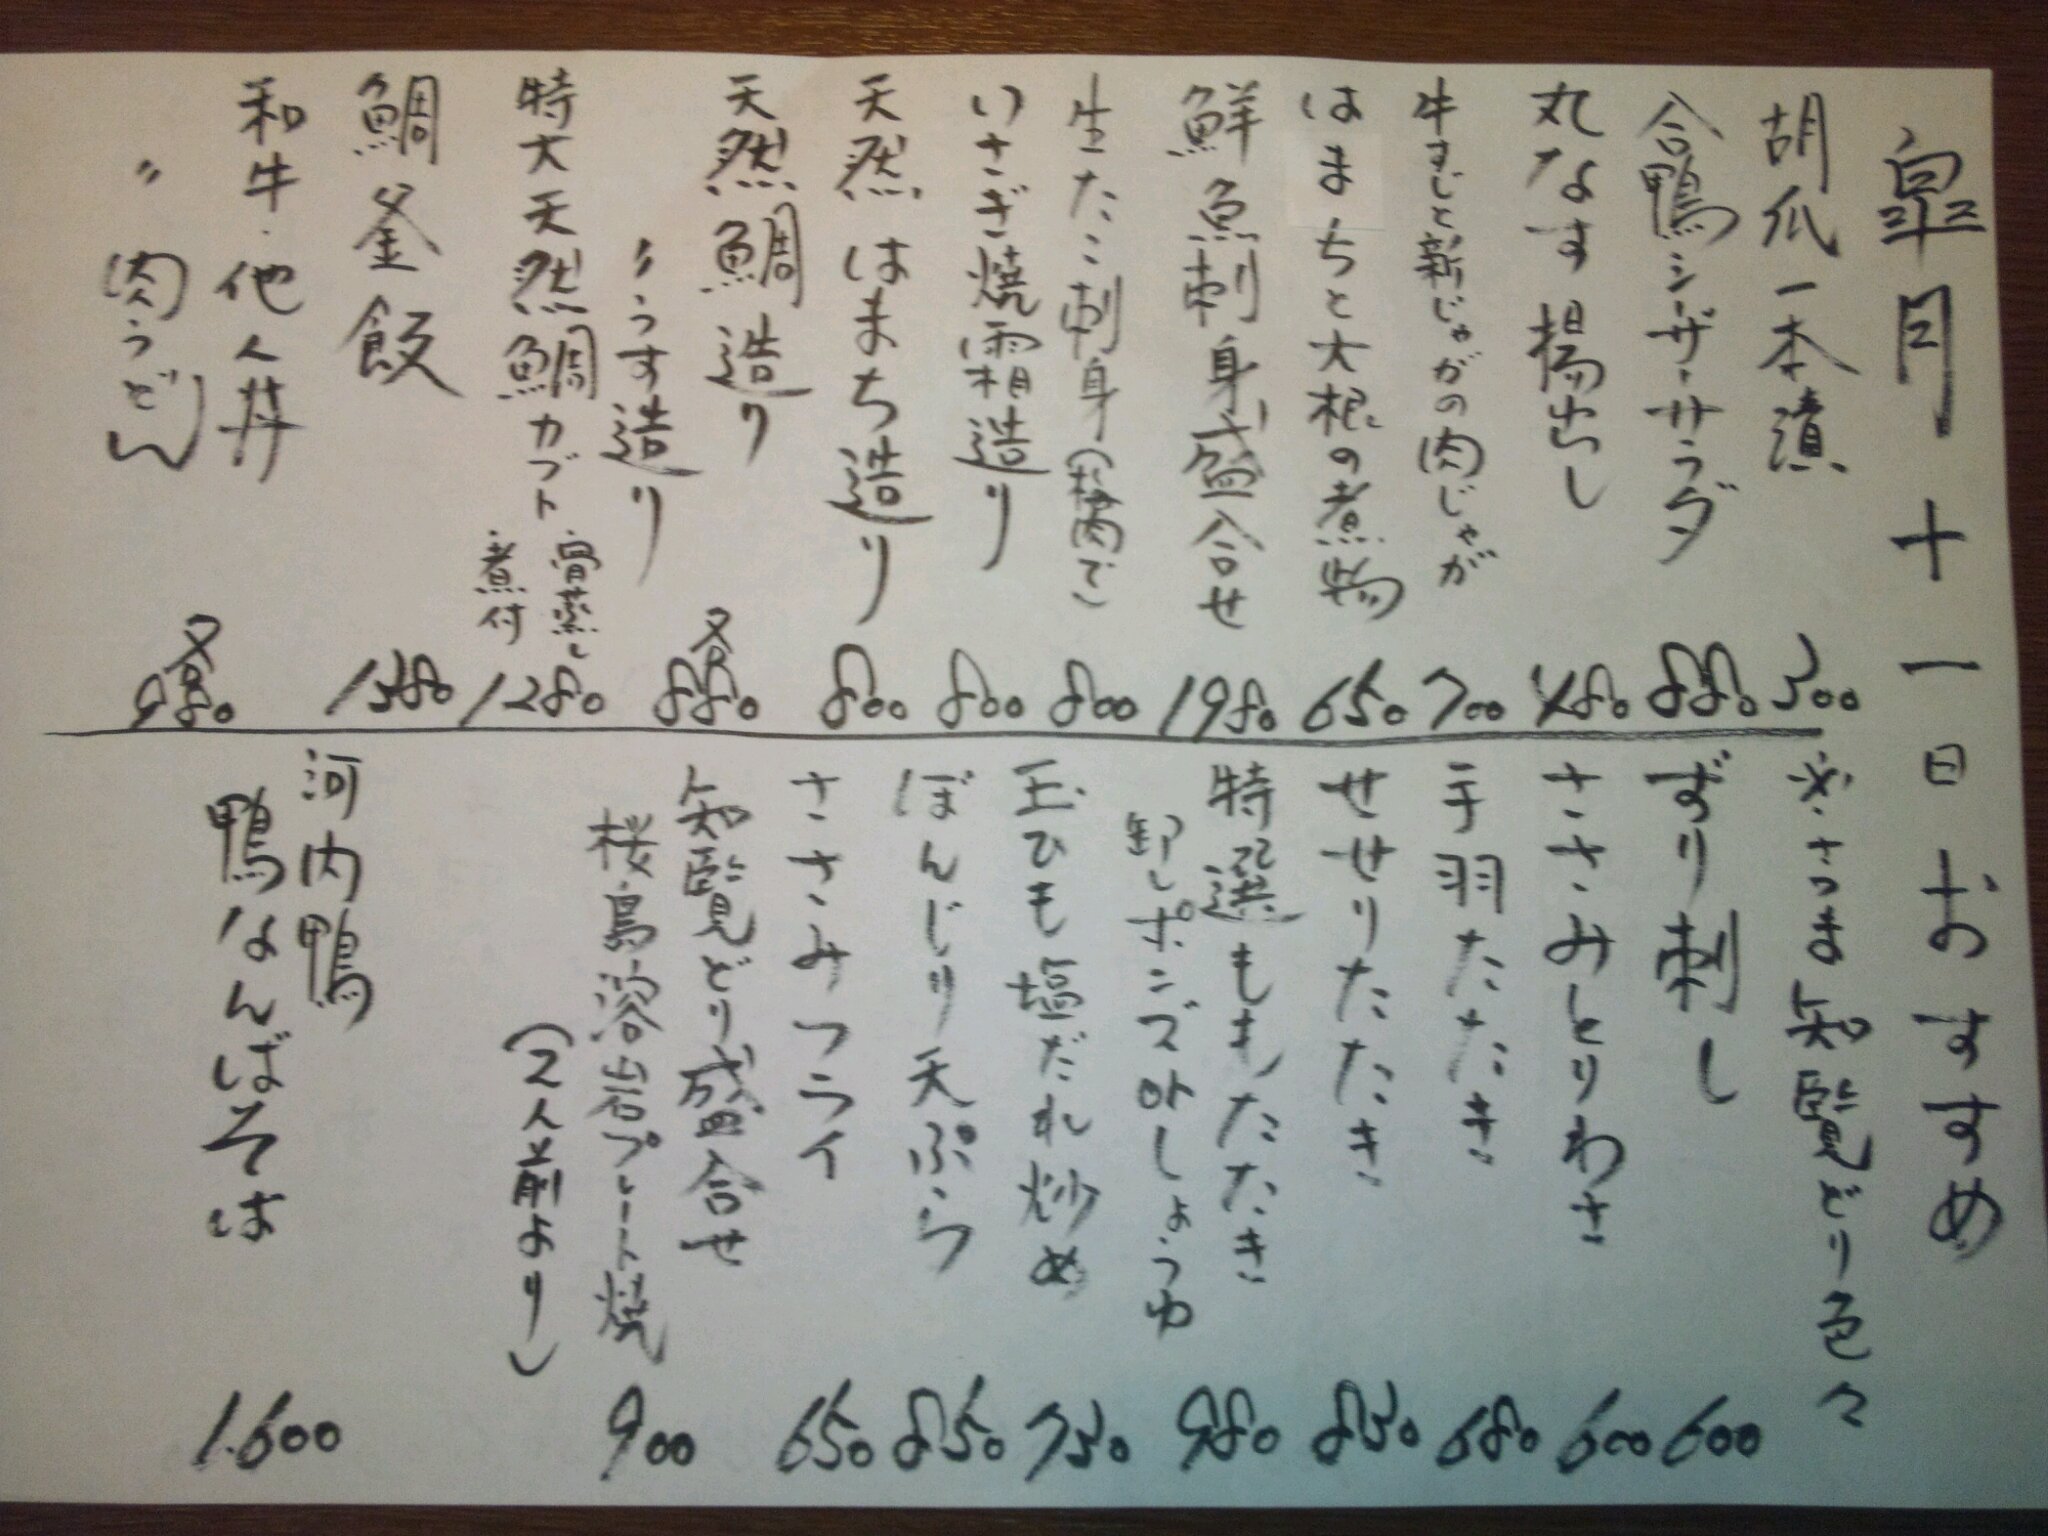 皐月十一日おすすめ
胡瓜一本漬 300
合鴨シーザーサラダ 880
丸なす揚出し 480
牛すじと新じゃがの肉じゃが 700
はまちと大根の煮物 650
鮮魚刺身盛合せ 1980
生たこ刺身 800
いさぎ焼霜造り 800
天然はまち造り 800
天然鯛造り 各880
〃うす造り
特大天然鯛カブト ・骨蒸し ・煮付 1280
鯛釜飯 1380
和牛・他人丼 各980
〃 肉うどん
※さつま知覧どり色々
ずり刺し 600
ささみとりわさ 600
手羽たたき 680
せせりたたき 850
特選ももたたき 980
卸しポンズorしょうゆ
玉ひも塩だれ炒め 750
ぼんじり天ぷら 850
ささみフライ 650
知覧どり盛合せ
桜島溶岩プレート焼 900
(2人前より)
河内鴨
鴨なんばそば 1.600